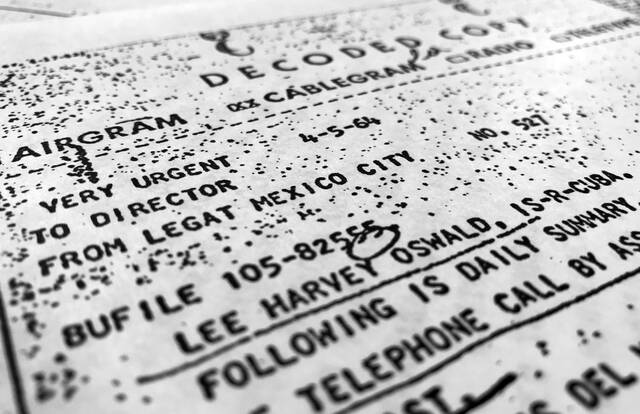 DECODED COPY
AIRGRAM xx CABLEGRAM RADIO
VERY URGENT 4-5-64 NO. 527
TO DIRECTOR
FROM LEGAT MEXICO CITY
BUFILE 105-82555
LEE HARVEY OSWALD, IS-R-CUBA.
FOLLOWING IS DAILY SUMMARY
TELEPHONE CALL BY
DEL